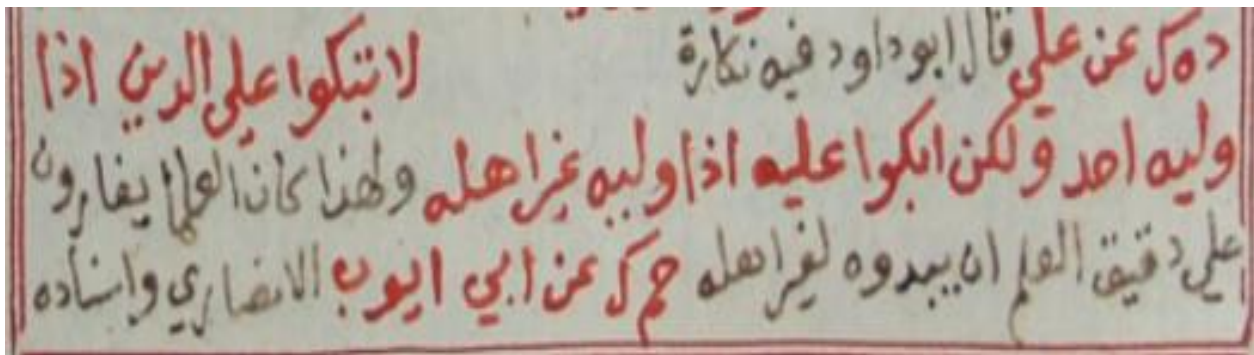 ده ك عن علي قال ابو داود فيه نكارة لا تبكوا على الدين اذا
وليه احد ولكن ابكوا عليه اذا وليه غير اهله ولهذا كان العلما يغارون
على دقيق العلم ان يبدوه لغير اهله حم ك عن ابي ايوب الانصاري واسناده